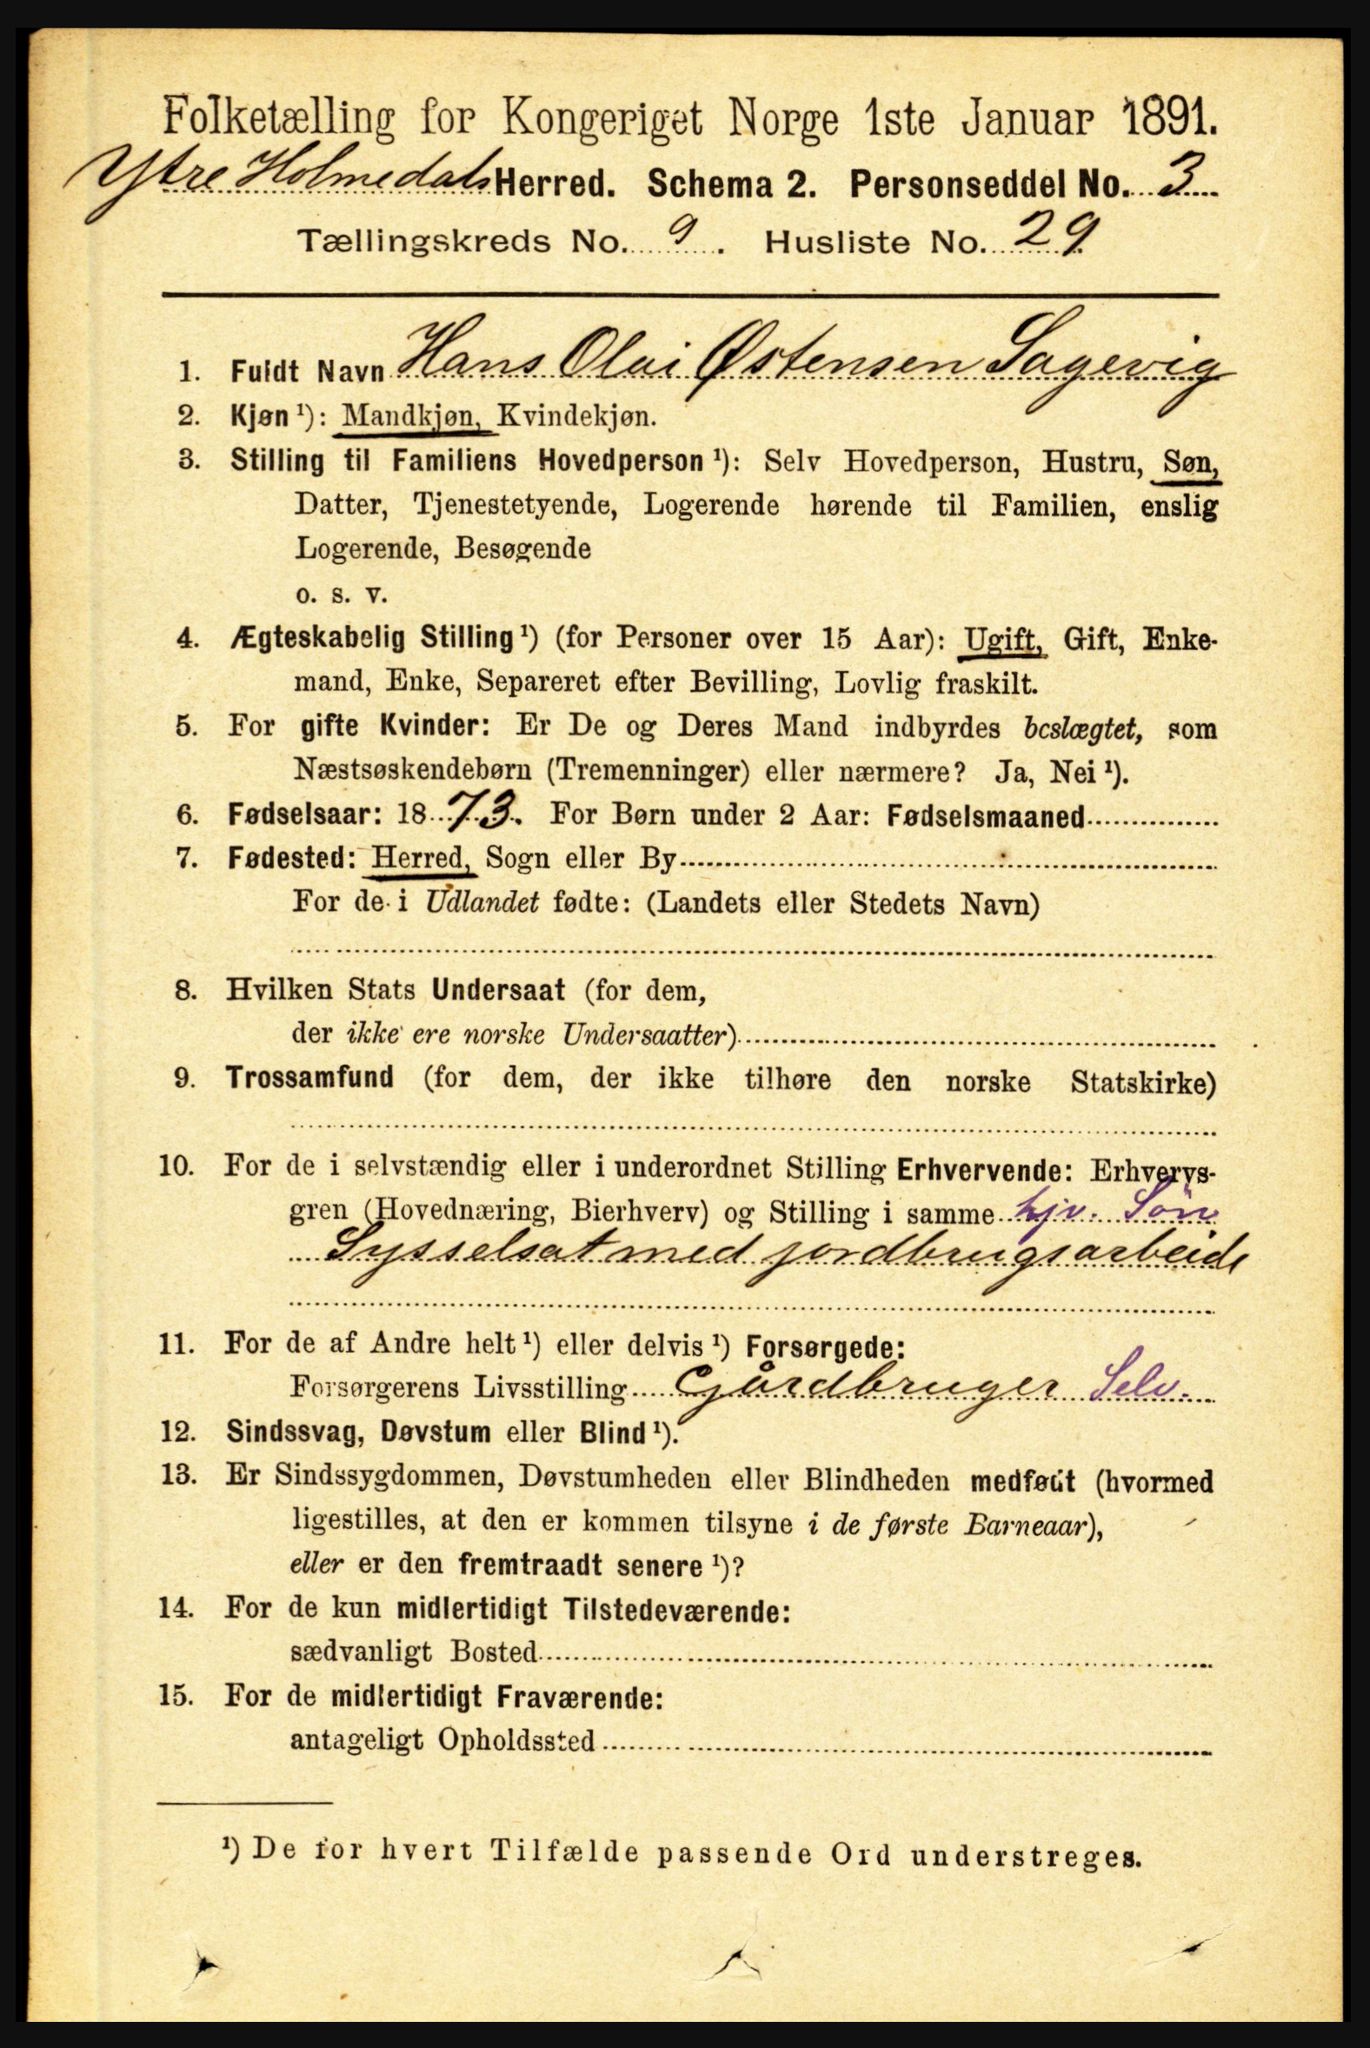 Folketælling for Kongeriget Norge 1ste Januar 1891.
Ytre Holmedals Herred. Schema 2. Personseddel No. 3
Tællingskreds No. 9. Husliste No. 29
1. Fuldt Navn Hans Olai Østensen Sagevig
2. Kjøn ¹): Mandkjøn, Kvindekjøn.
3. Stilling til Familiens Hovedperson ¹): Selv Hovedperson, Hustru, Søn,
Datter, Tjenestetyende, Logerende hørende til Familien, enslig
Logerende, Besøgende
o. s. v.
4. Ægteskabelig Stilling ¹) (for Personer over 15 Aar): Ugift, Gift, Enke-
mand, Enke, Separeret efter Bevilling, Lovlig fraskilt.
5. For gifte Kvinder: Er De og Deres Mand indbyrdes beslægtet, som
Næstsøskendebørn (Tremenninger) eller nærmere? Ja, Nei ¹).
6. Fødselsaar: 1873. For Børn under 2 Aar: Fødselsmaaned
7. Fødested: Herred, Sogn eller By
For de i Udlandet fødte: (Landets eller Stedets Navn)
8. Hvilken Stats Undersaat (for dem,
der ikke ere norske Undersaatter)
9. Trossamfund (for dem, der ikke tilhøre den norske Statskirke)
10. For de i selvstændig eller i underordnet Stilling Erhvervende: Erhvervs-
gren (Hovednæring, Bierhverv) og Stilling i samme hjv. Søn
Sysselsat med jordbrugsarbeide
11. For de af Andre helt ¹) eller delvis ¹) Forsørgede:
Forsørgerens Livsstilling Gårdbruger Selv.
12. Sindssvag, Døvstum eller Blind ¹).
13. Er Sindssygdommen, Døvstumheden eller Blindheden medfødt (hvormed
ligestilles, at den er kommen tilsyne i de første Barneaar),
eller er den fremtraadt senere ¹)?
14. For de kun midlertidigt Tilstedeværende:
sædvanligt Bosted
15. For de midlertidigt Fraværende:
antageligt Opholdssted
¹) De for hvert Tilfælde passende Ord understreges.